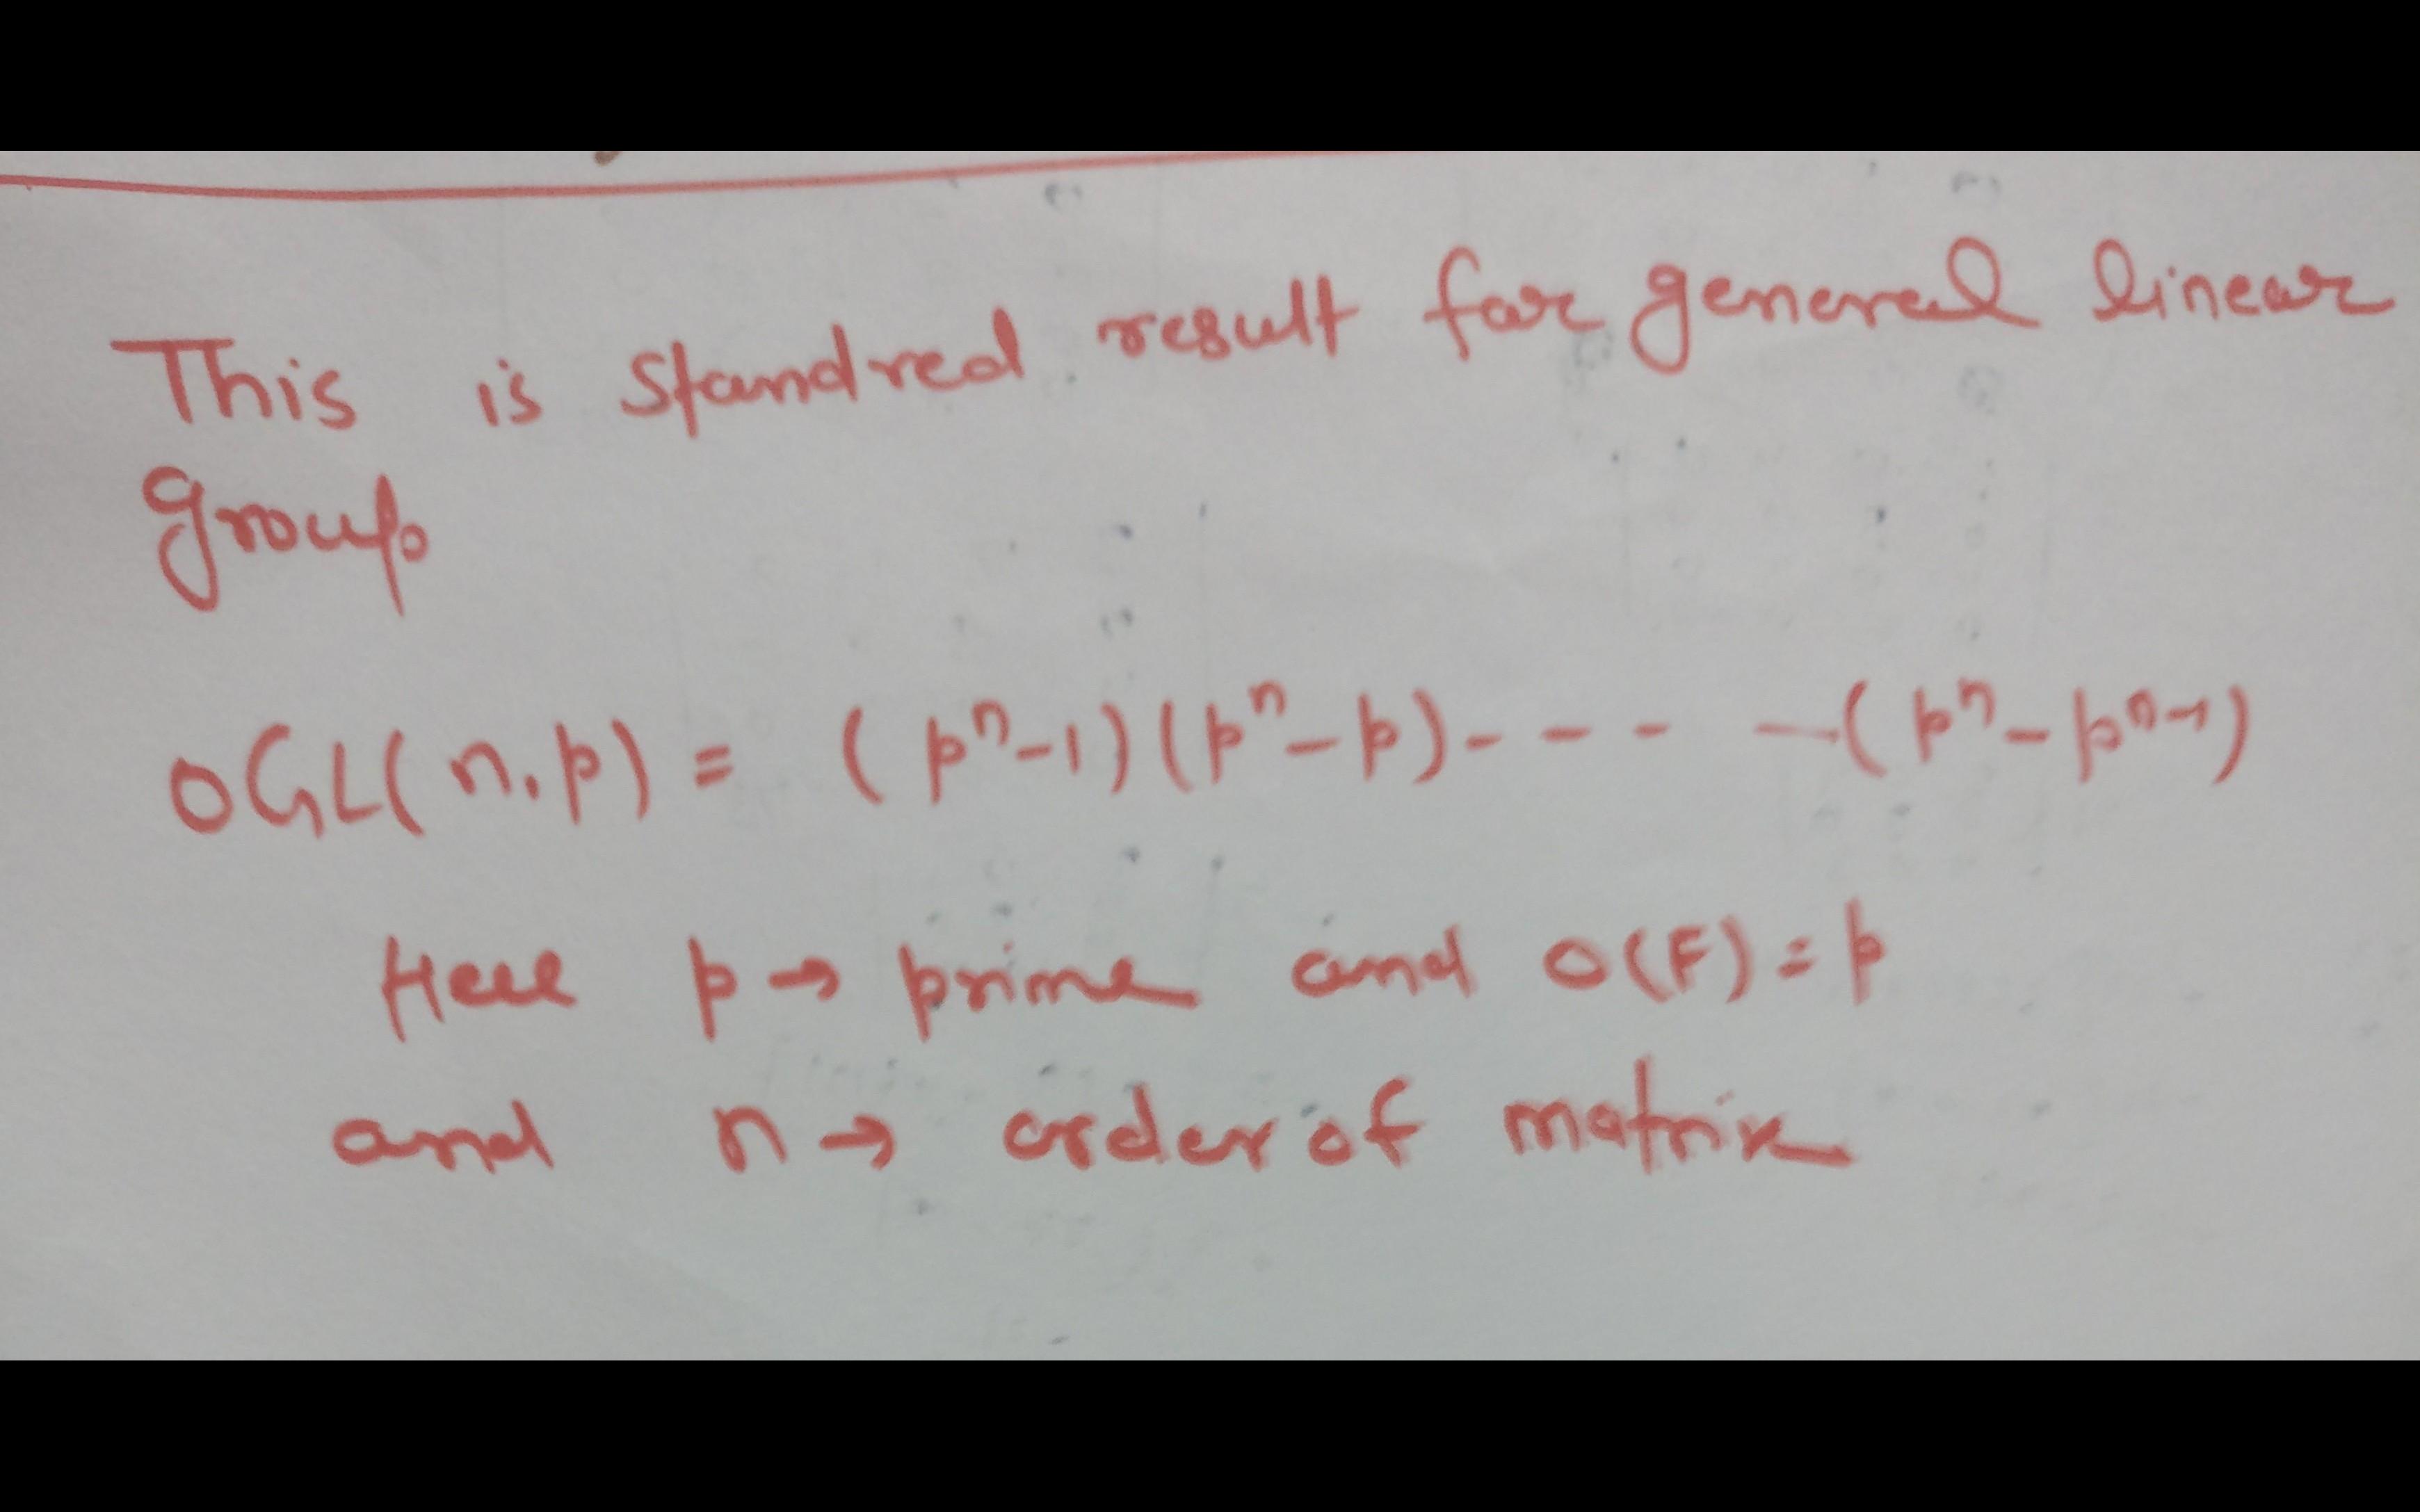 This is standred result for general linear
group
OGL(n.p) = (pⁿ-1)(pⁿ-p)- - - -(pⁿ-pⁿ⁻¹)
Here p→ prime and O(F)=p
and n→ order of matrix